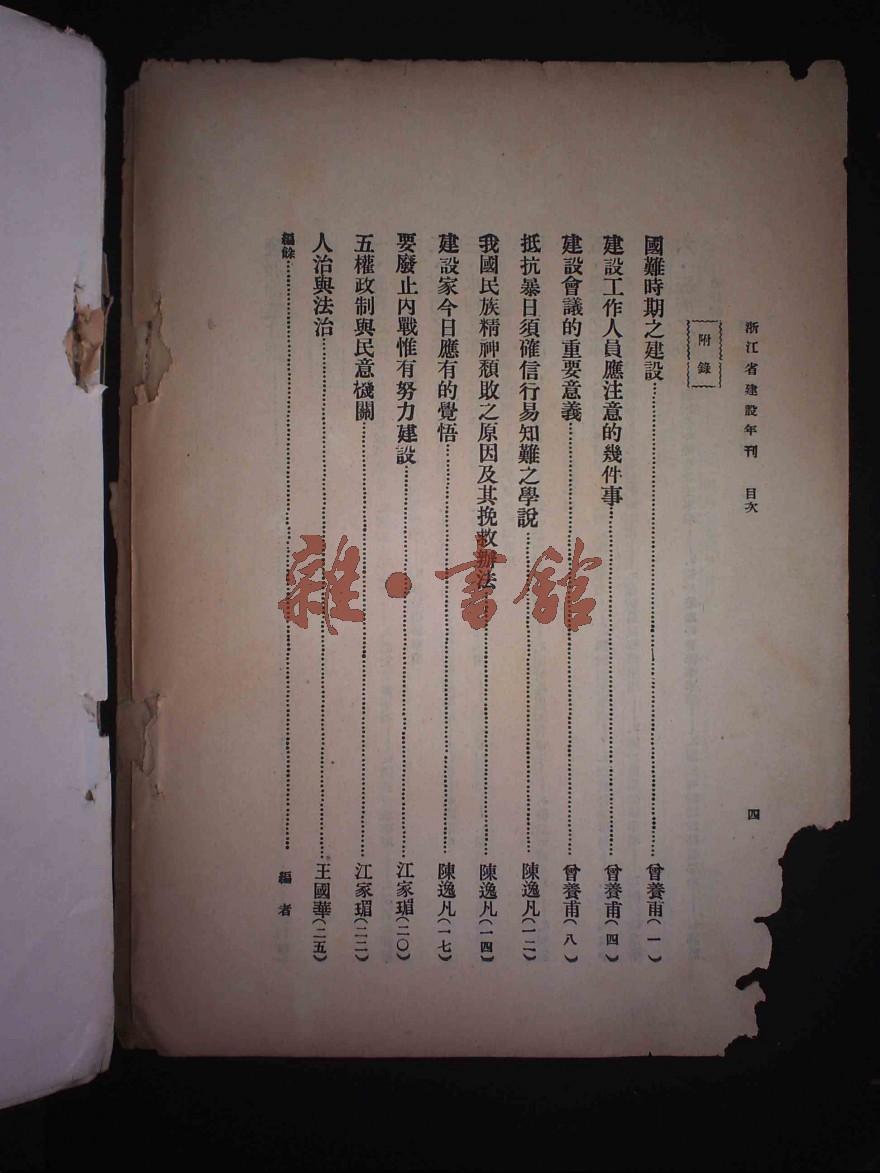 浙江省建設年刊 目次 四
附錄
國難時期之建設……曾養甫(一)
建設工作人員應注意的幾件事……曾養甫(四)
建設會議的重要意義……曾養甫(八)
抵抗暴日須確信行易知難之學說……陳逸凡(一二)
我國民族精神頹敗之原因及其挽救辦法……陳逸凡(一四)
建設家今日應有的覺悟……陳逸凡(一七)
要廢止內戰惟有努力建設……江家瑂(二〇)
五權政制與民意機關……江家瑂(二二)
人治與法治……王國華(二五)
編餘……編者
雜·書館